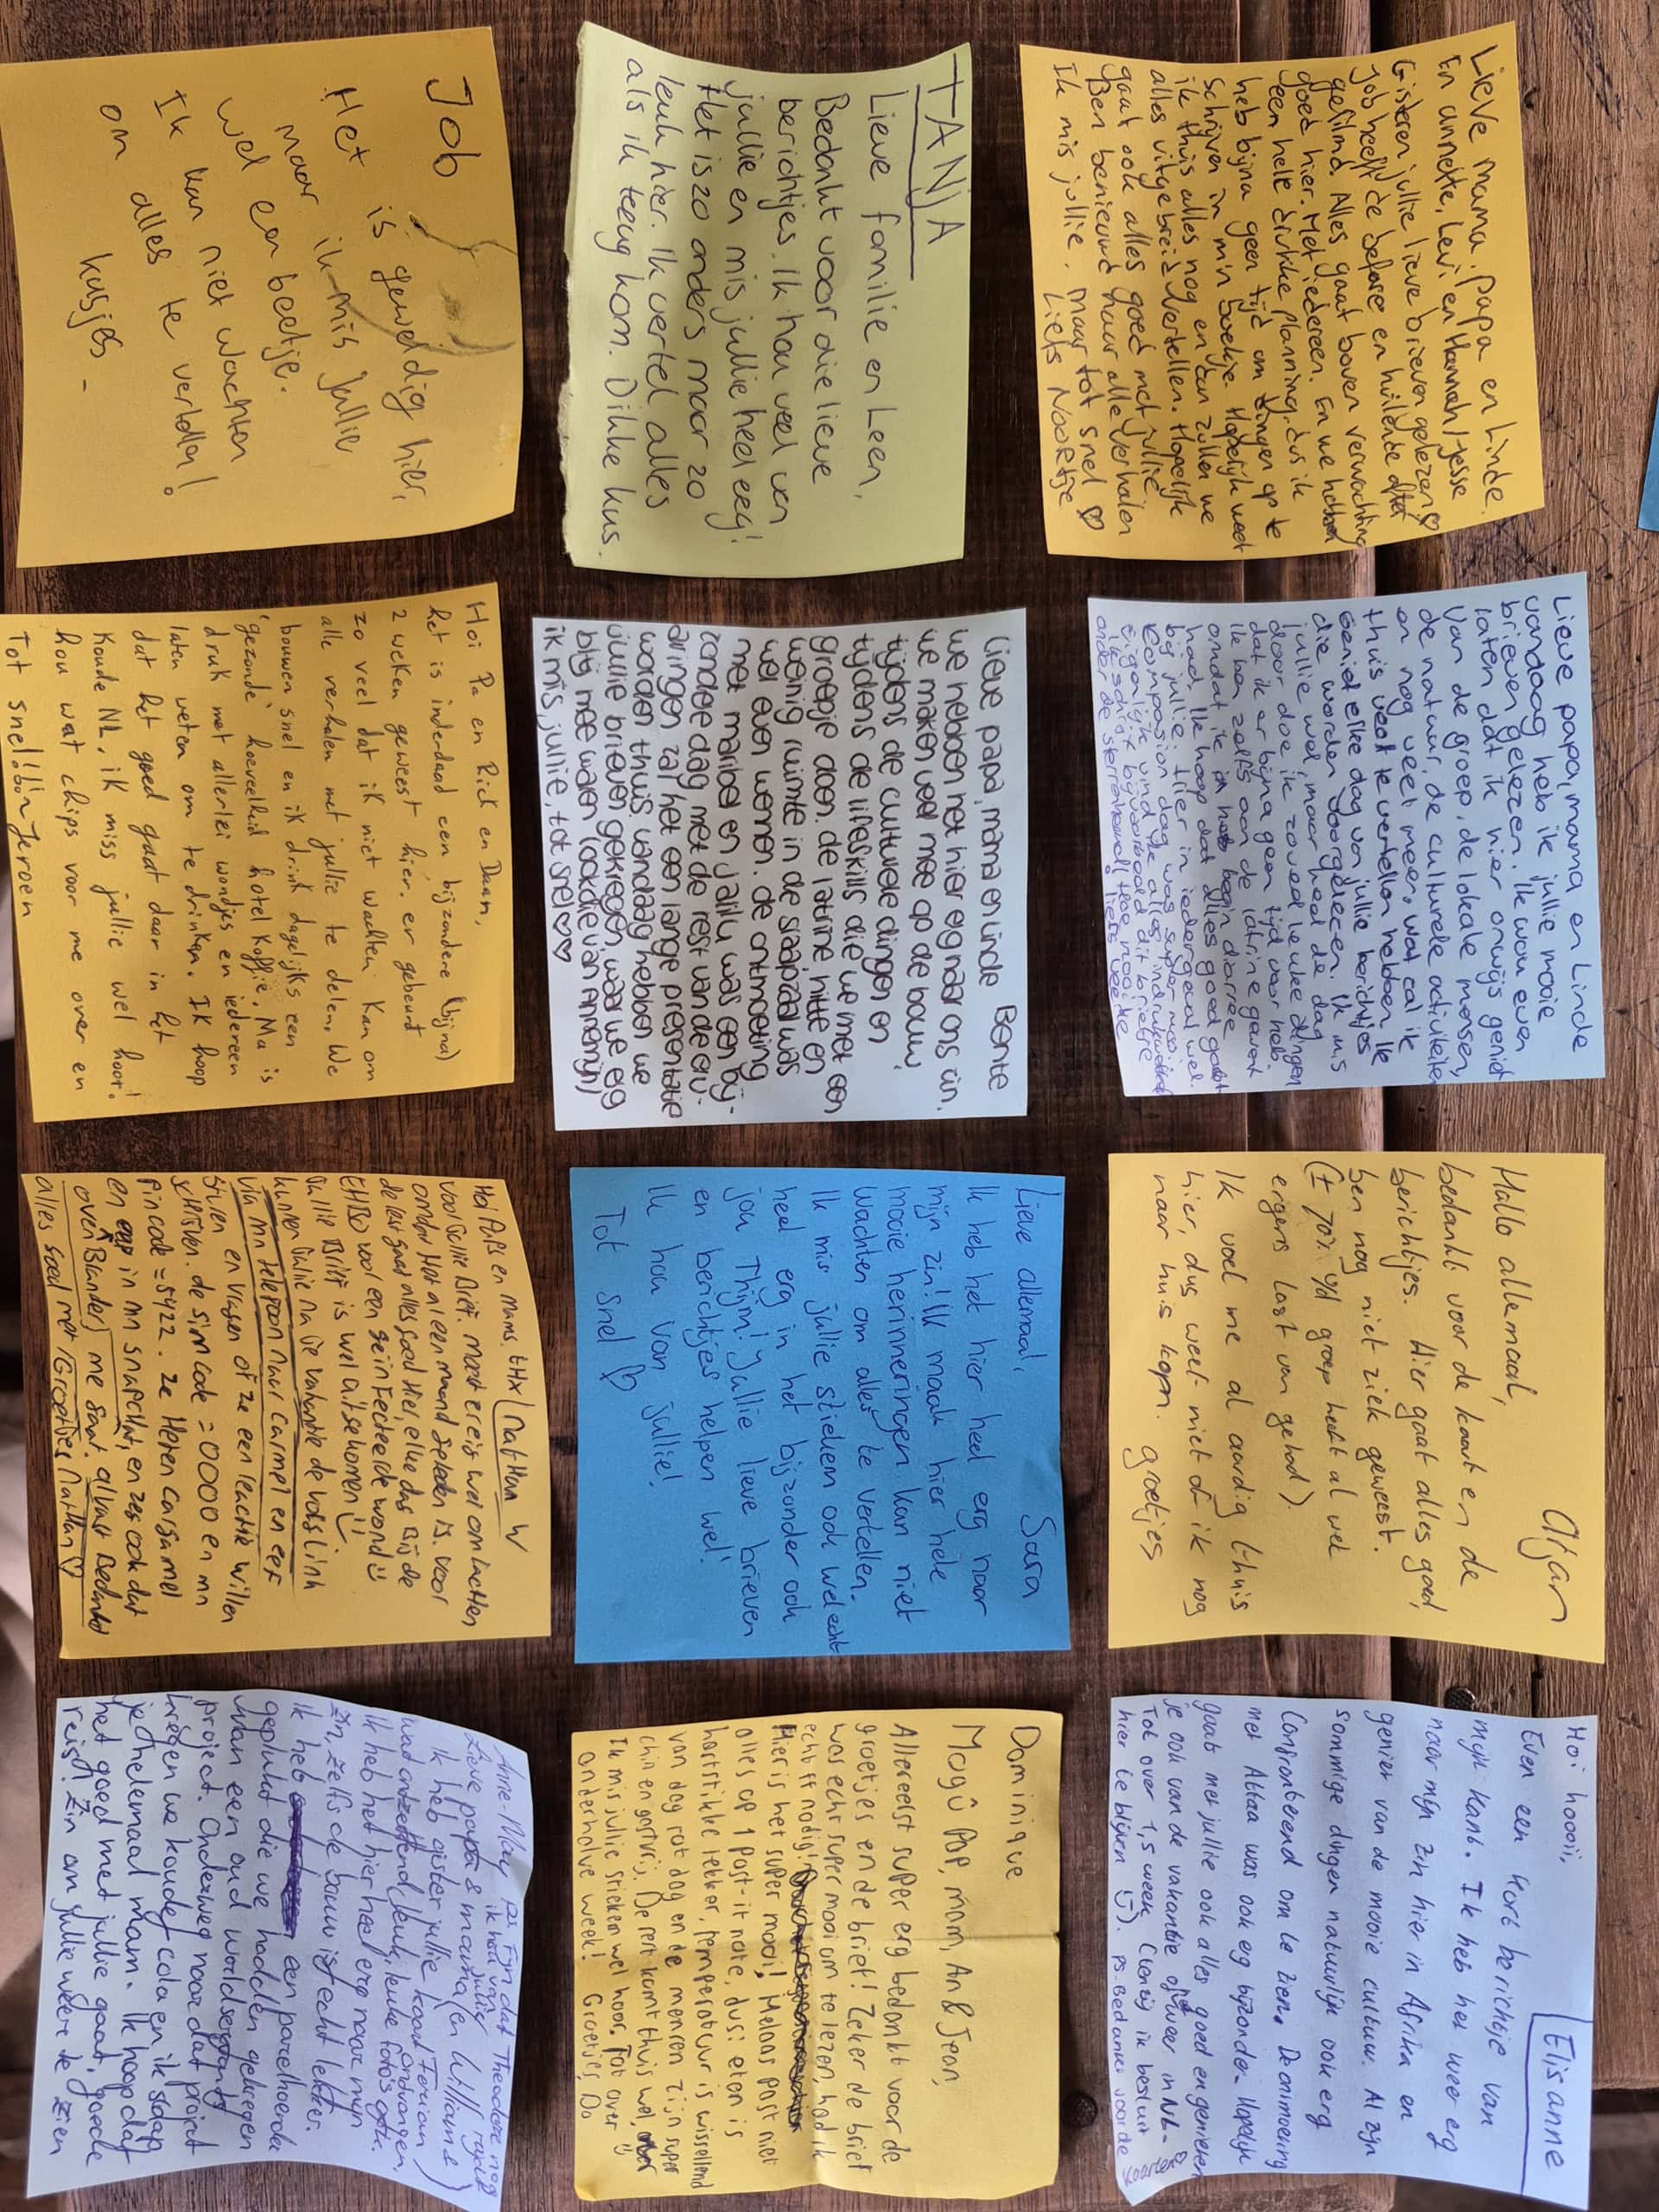 Lieve mama, papa en Linde.
En annette, Levi en Hannah/Jesse
Gisteren jullie lieve brieven gelezen ♡
Job heeft de before en huilende after
gefilmd. Alles gaat boven verwachting
goed hier. Met iedereen. En we hebben
een hele drukke planning, dus ik
heb bijna geen tijd om dingen op te
schrijven in mijn boekje. Hopelijk weet
ik thuis alles nog en dan zullen we
alles uitgebreid vertellen. Hopelijk
gaat ook alles goed met jullie
Ben benieuwd naar alle verhalen
Ik mis jullie, maar tot snel ♡
Liefs Noortje
Lieve papa, mama en Linde
vandaag heb ik jullie mooie
brieven gelezen. Ik wou even
laten dat ik hier onwijs geniet
van de groep, de lokale mensen,
de natuur, de culturele activiteiten
en nog veel meer. wat zal ik
thuis veel te vertellen hebben. Ik
geniet elke dag van jullie berichtjes
die worden voorgelezen. Ik mis
jullie wel, maar heel de dag
door doe ik zoveel leuke dingen
dat ik er bijna geen tijd voor heb.
Ik ben zelfs aan de latrine gewent
omdat ik in het begin diarree
had. Ik hoop dat alles goed gaat
bij jullie. Hier in iedergeval wel.
Compassion dag was super mooi
eigenlijk vind ik alles indrukwekkend
ik schrijf bijvoorbeeld dit briefje
onder de sterrenhemel. Hoe mooi
Liefs
Hallo allemaal,
Arjan
bedankt voor de kaart en de
berichtjes. Hier gaat alles goed,
ben nog niet ziek geweest.
(± 70% v/d groep heeft al wel
ergens last van gehad)
Ik voel me al aardig thuis
hier, dus weet niet of ik nog
naar huis kom. groetjes
Hoi hoooii,
Elisanne
Even een kort berichtje van
mijn kant. Ik heb het weer erg
naar mijn zin hier in Afrika en
geniet van de mooie cultuur. Al zijn
sommige dingen natuurlijk ook erg
Confronterend om te zien. De ontmoeting
met Abtaa was ook erg bijzonder. Hopelijk
gaat met jullie ook alles goed en genieten
je ook van de vakantie of het weer in NL.
Tot over 1,5 week (tenzij ik besluit
hier te blijven :)). ps. Bedankt voor de kaartjes
TANJA
Lieve familie en Leen,
Bedankt voor die lieve
berichtjes. Ik hou veel van
jullie en mis jullie heel erg!
Het is zo anders maar zo
leuk hier. Ik vertel alles
als ik terug kom. Dikke kus.
Lieve papa, mama en Linde Bente
we hebben het hier erg naar ons zin.
we maken veel mee op de bouw,
tijdens de culturele dingen en
tijdens de lifeskills die we met een
groepje doen. de latrine, hitte en
weinig ruimte in de slaapzaal was
wel even wennen. de ontmoeting
met maribel en jalilu was een bij-
zondere dag met de rest van de er-
varingen zal het een lange presentatie
worden thuis. vandaag hebben we
jullie brieven gekregen, waar we erg
blij mee waren (ook die van Annemijn)
ik mis jullie, tot snel ♡♡♡
Lieve allemaal,
Sara
Ik heb het hier heel erg naar
mijn zin! Ik maak hier hele
mooie herinneringen kan niet
wachten om alles te vertellen.
Ik mis jullie stiekem ook wel echt
heel erg in het bijzonder ook
jou Thijm! Jullie lieve brieven
en berichtjes helpen wel!
Ik hou van jullie!
Tot snel ♡
Dominique
Mogû Pap, mam, An & Jean,
Allereerst super erg bedankt voor de
groetjes en de brief! Zeker de brief
was echt super mooi om te lezen, had ik
echt ff nodig!
Hier is het super mooi! Helaas past niet
alles op 1 post-it note, dus: eten is
hartstikke lekker, temperatuur is wisselend
van dag tot dag en de mensen zijn super
chill en gastvrij. De rest komt thuis wel, over
Ik mis jullie stiekem wel hoor. Tot over :)
anderhalve week! Groetjes, Do
Job
Het is geweldig hier,
maar ik mis jullie
wel een beetje.
Ik kan niet wachten
om alles te vertellen!
kusjes -
Hoi Pa en Rick en Daan,
het is inderdaad een bijzondere (bijna)
2 weken geweest hier. er gebeurt
zo veel dat ik niet wachten kan om
alle verhalen met jullie te delen. We
bouwen snel en ik drink dagelijks een
'gezonde' hoeveelheid hotel koffie. Ma is
druk met allerlei wondjes en iedereen
laten weten om te drinken. Ik hoop
dat het goed gaat daar in het
koude NL. ik miss jullie wel hoor!
hou wat chips voor me over en
Tot snel! Jeroen
Hoi Paps en Mams. thx Nathan W
voor jullie Brief. moest er eis wel om lachen
omdat Het al een maand geleden is. voor
de rest gaat alles goed Hier, elke dag Bij de
EHBO voor een geïnfecteerde wond :)
Jullie Brief is wel aangekomen :)
kunnen jullie na die vakantie de vors link
via mn telefoon naar carmel en eef
sturen en vragen of ze een reactie willen
schrijven. de simcode = 0000 en mn
Pincode = 5422. ze Heten carsamel
en eep in mn snapchat, en zeg ook dat
over Blander) me gaat. alvast Bedankt
alles goed met / Groetjes Nathan ♡
Anne-May
ps. Fijn dat Theodore nog rijdt
ik hou van jullie
Lieve papa & mama (en William &
Ik heb gister jullie kaart Ferican)
wat ontzettend leuk, leuke foto's ook.
Ik heb het hier heel erg naar mijn
zin, zelfs de bouw is echt lekker.
Ik heb een parelhoender
geplukt die we hadden gekregen
van een oud worldservants
project. Onderweg naar dat project
kregen we koude cola en ik snap
je helemaal mam. Ik hoop dat
het goed met jullie gaat, goede
reis! Zin om jullie weer te zien